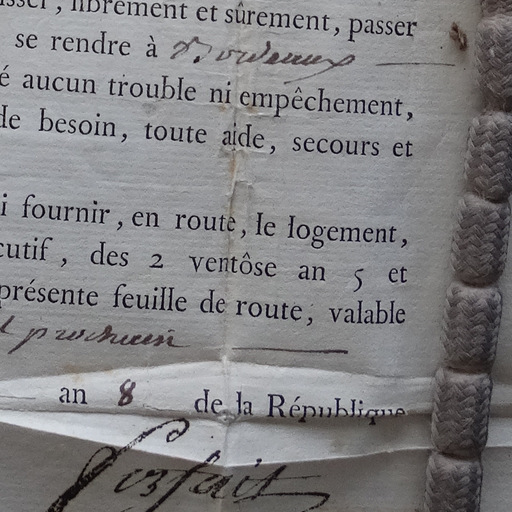 isser, librement et sûrement, passer
se rendre à Bordeaux
é aucun trouble ni empêchement,
de besoin, toute aide, secours et
i fournir, en route, le logement,
cutif, des 2 ventôse an 5 et
présente feuille de route, valable
l prochain
an 8 de la République
Parfait